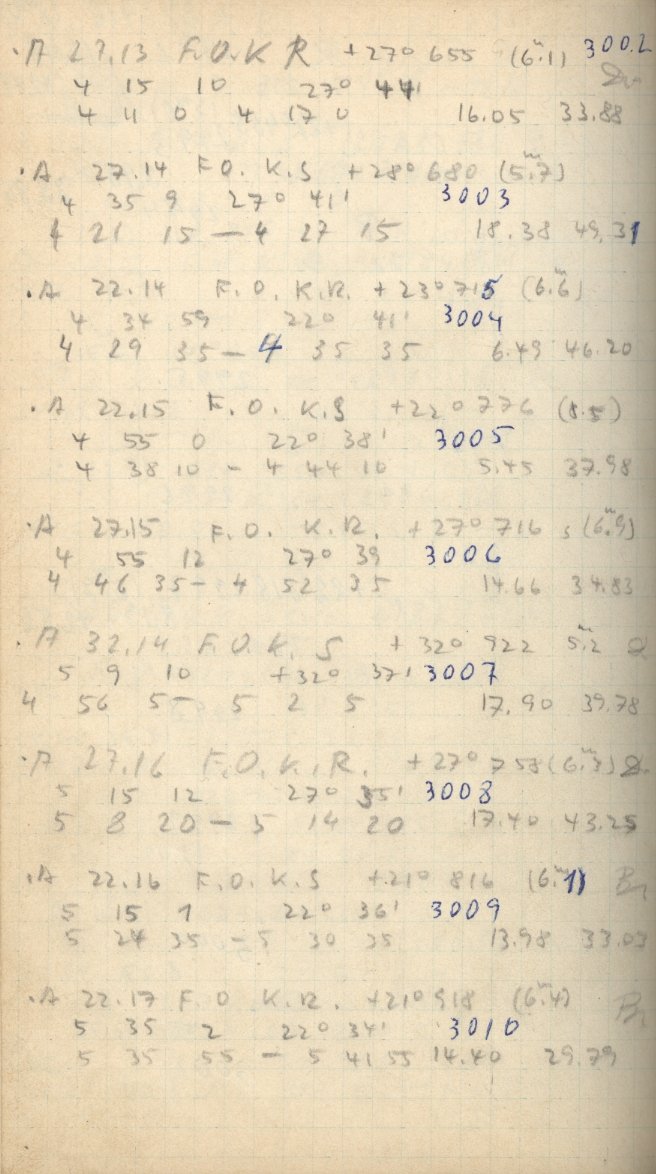 · A 27.13 F.O.K R +27° 655 (6.ᵐ1) 3002
4 15 10 27° 44'
4 11 0 4 17 0 16.05 33.88
· A 27.14 F.O. K.S +28° 680 (5.ᵐ7)
4 35 9 27° 41' 3003
4 21 15 — 4 27 15 18.38 49,31
· A 22.14 F.O. K.R. +23° 715 (6.ᵐ6)
4 34 59 22° 41' 3004
4 29 35 — 4 35 35 6.49 46.20
· A 22.15 F.O. K.S +22° 776 (8.5)
4 55 0 22° 38' 3005
4 38 10 - 4 44 10 5.45 37.98
· A 27.15 F.O. K.R. +27° 716 (6.ᵐ9)
4 55 12 27° 39 3006
4 46 35 — 4 52 35 14.66 34.83
· A 32.14 F.O.K. S +32° 922 5.ᵐ2
5 9 10 +32° 37' 3007
4 56 5 — 5 2 5 17.90 39.78
· A 27.16 F.O.K.R. +27° 758 (6.ᵐ3)
5 15 12 27° 35' 3008
5 8 20 — 5 14 20 17.40 43.25
· A 22.16 F.O. K.S +21° 816 (6.ᵐ1)
5 15 1 22° 36' 3009
5 24 35 - 5 30 35 13.98 33.03
· A 22.17 F.O K.R. +21° 918 (6.ᵐ4)
5 35 2 22° 34' 3010
5 35 55 — 5 41 55 14.40 29.79